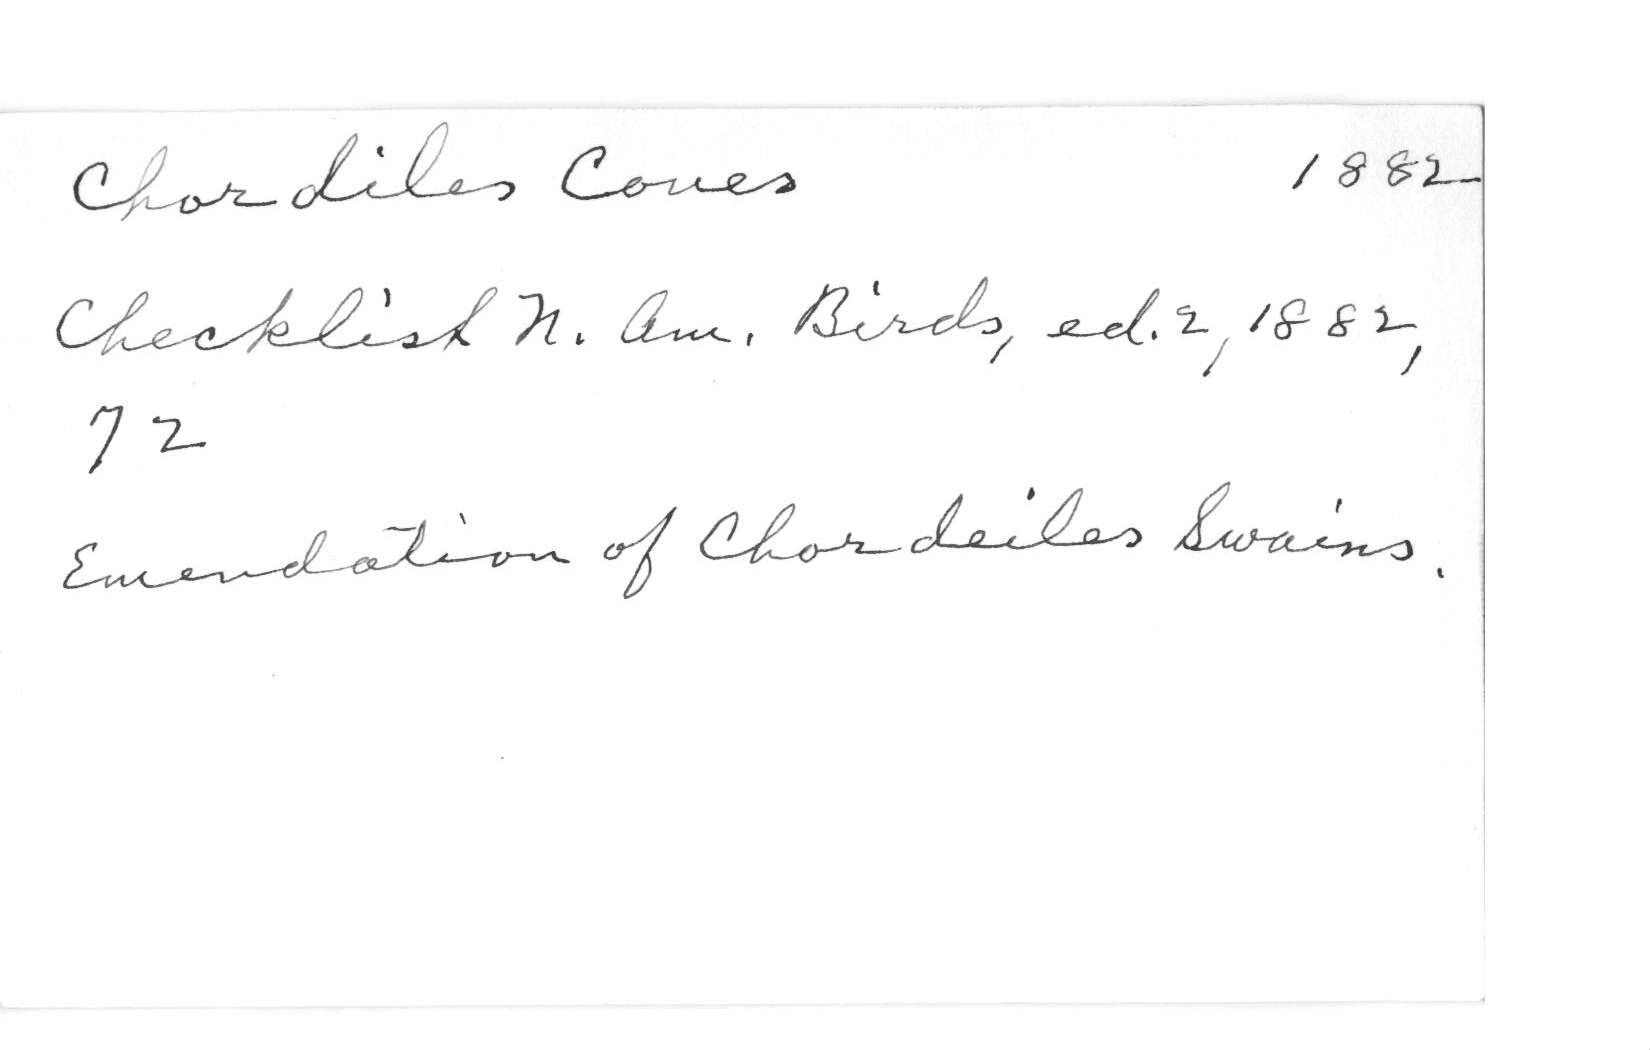 Chordiles Coues 1882
Checklist N. Am. Birds, ed. 2, 1882,
72
Emendation of Chordeiles Swains.